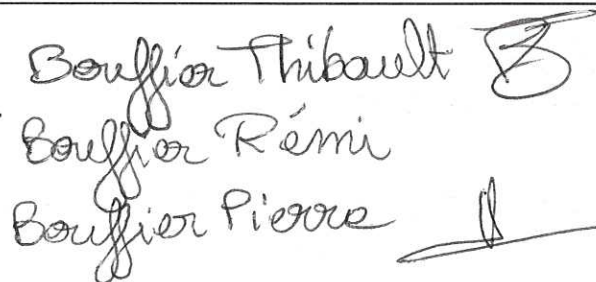 Bouffier Thibault
Bouffier Rémi
Bouffier Pierre